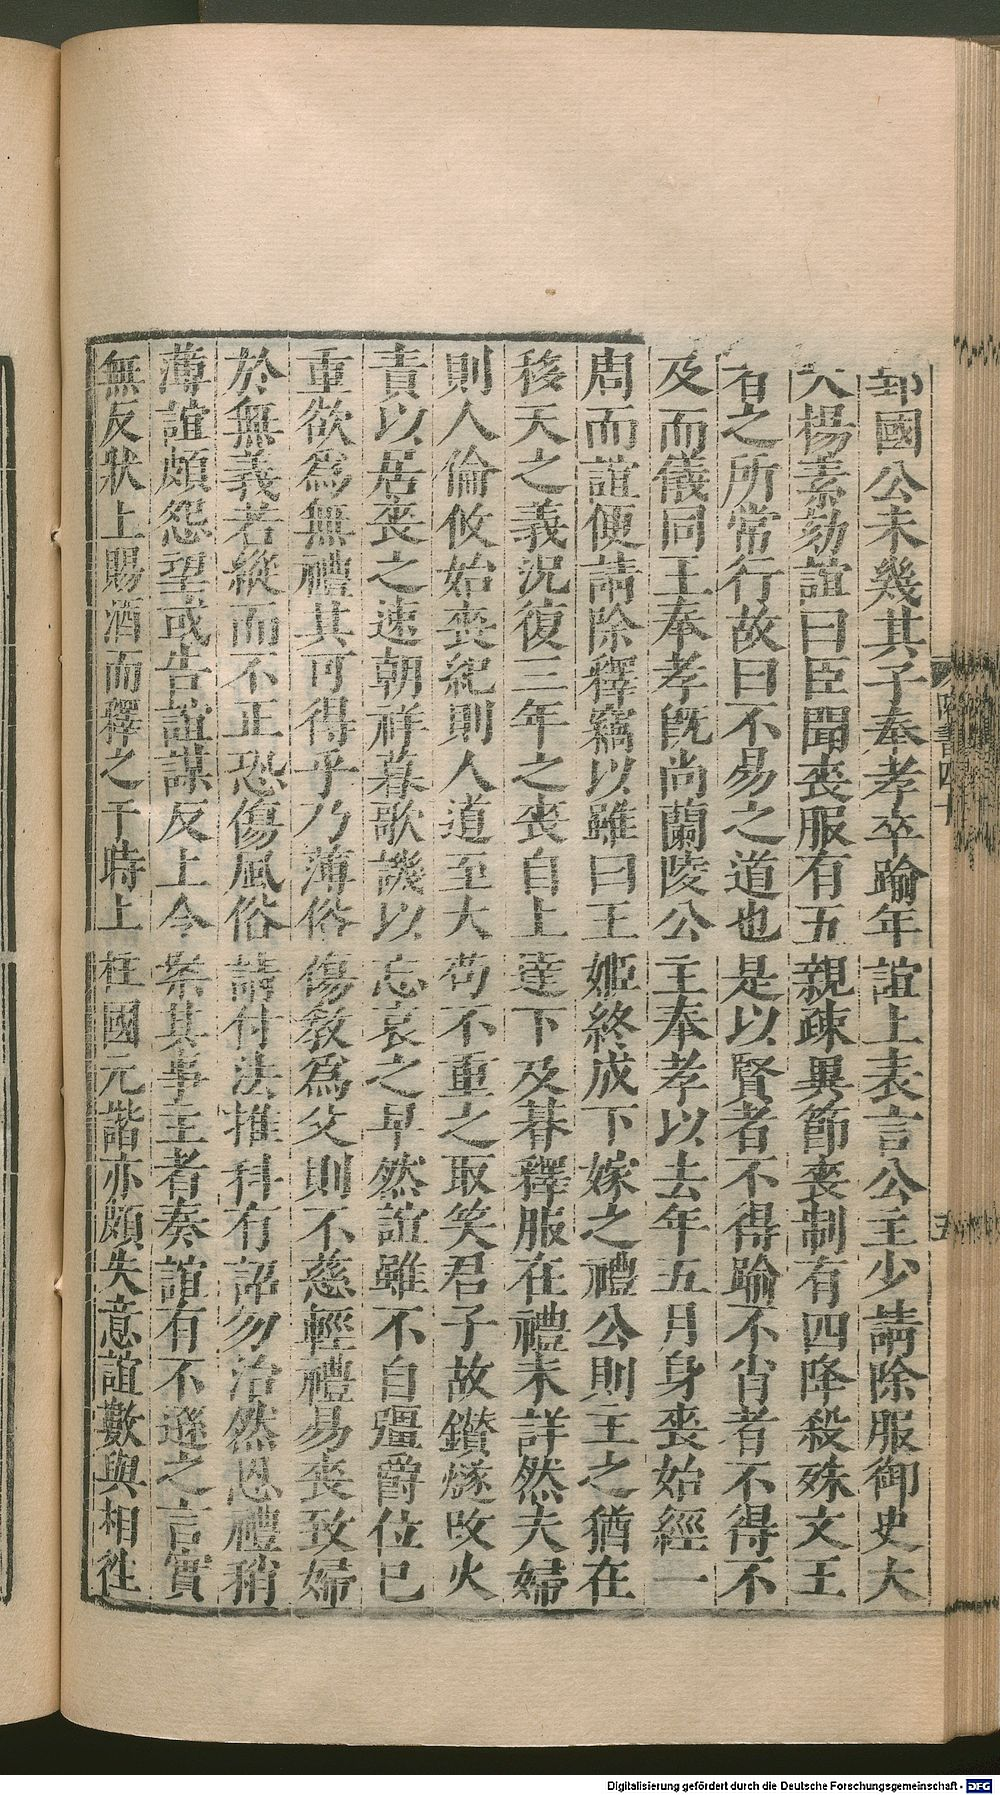 郢國公未幾其子奉孝卒踰年誼上表言公主少請除服御史大
夫楊素劾誼曰臣聞喪服有五親疎異節喪制有四降殺殊文王
者之所常行故曰不易之道也是以賢者不得踰不肖者不得不
及而儀同王奉孝旣尚蘭陵公主奉孝以去年五月身喪始經一
周而誼便請除釋竊以雖曰王姬終成下嫁之禮公則主之猶在
移天之義況復三年之喪自上達下及朞釋服在禮未詳然夫婦
則人倫攸始喪紀則人道至大苟不重之取笑君子故鑚燧改火
責以居喪之速朝祥暮歌譏以忘哀之早然誼雖不自彊爵位已
重欲爲無禮其可得乎乃薄俗傷敎爲父則不慈輕禮易喪致婦
於無義若縱而不正恐傷風俗請付法推科有詔勿治然恩禮稍
薄誼頗怨望或告誼謀反上令案其事主者奏誼有不遜之言實
無反狀上賜酒而釋之于時上柱國元諧亦頗失意誼數與相徃
隋書四十
五
Digitalisierung gefördert durch die Deutsche Forschungsgemeinschaft - DFG